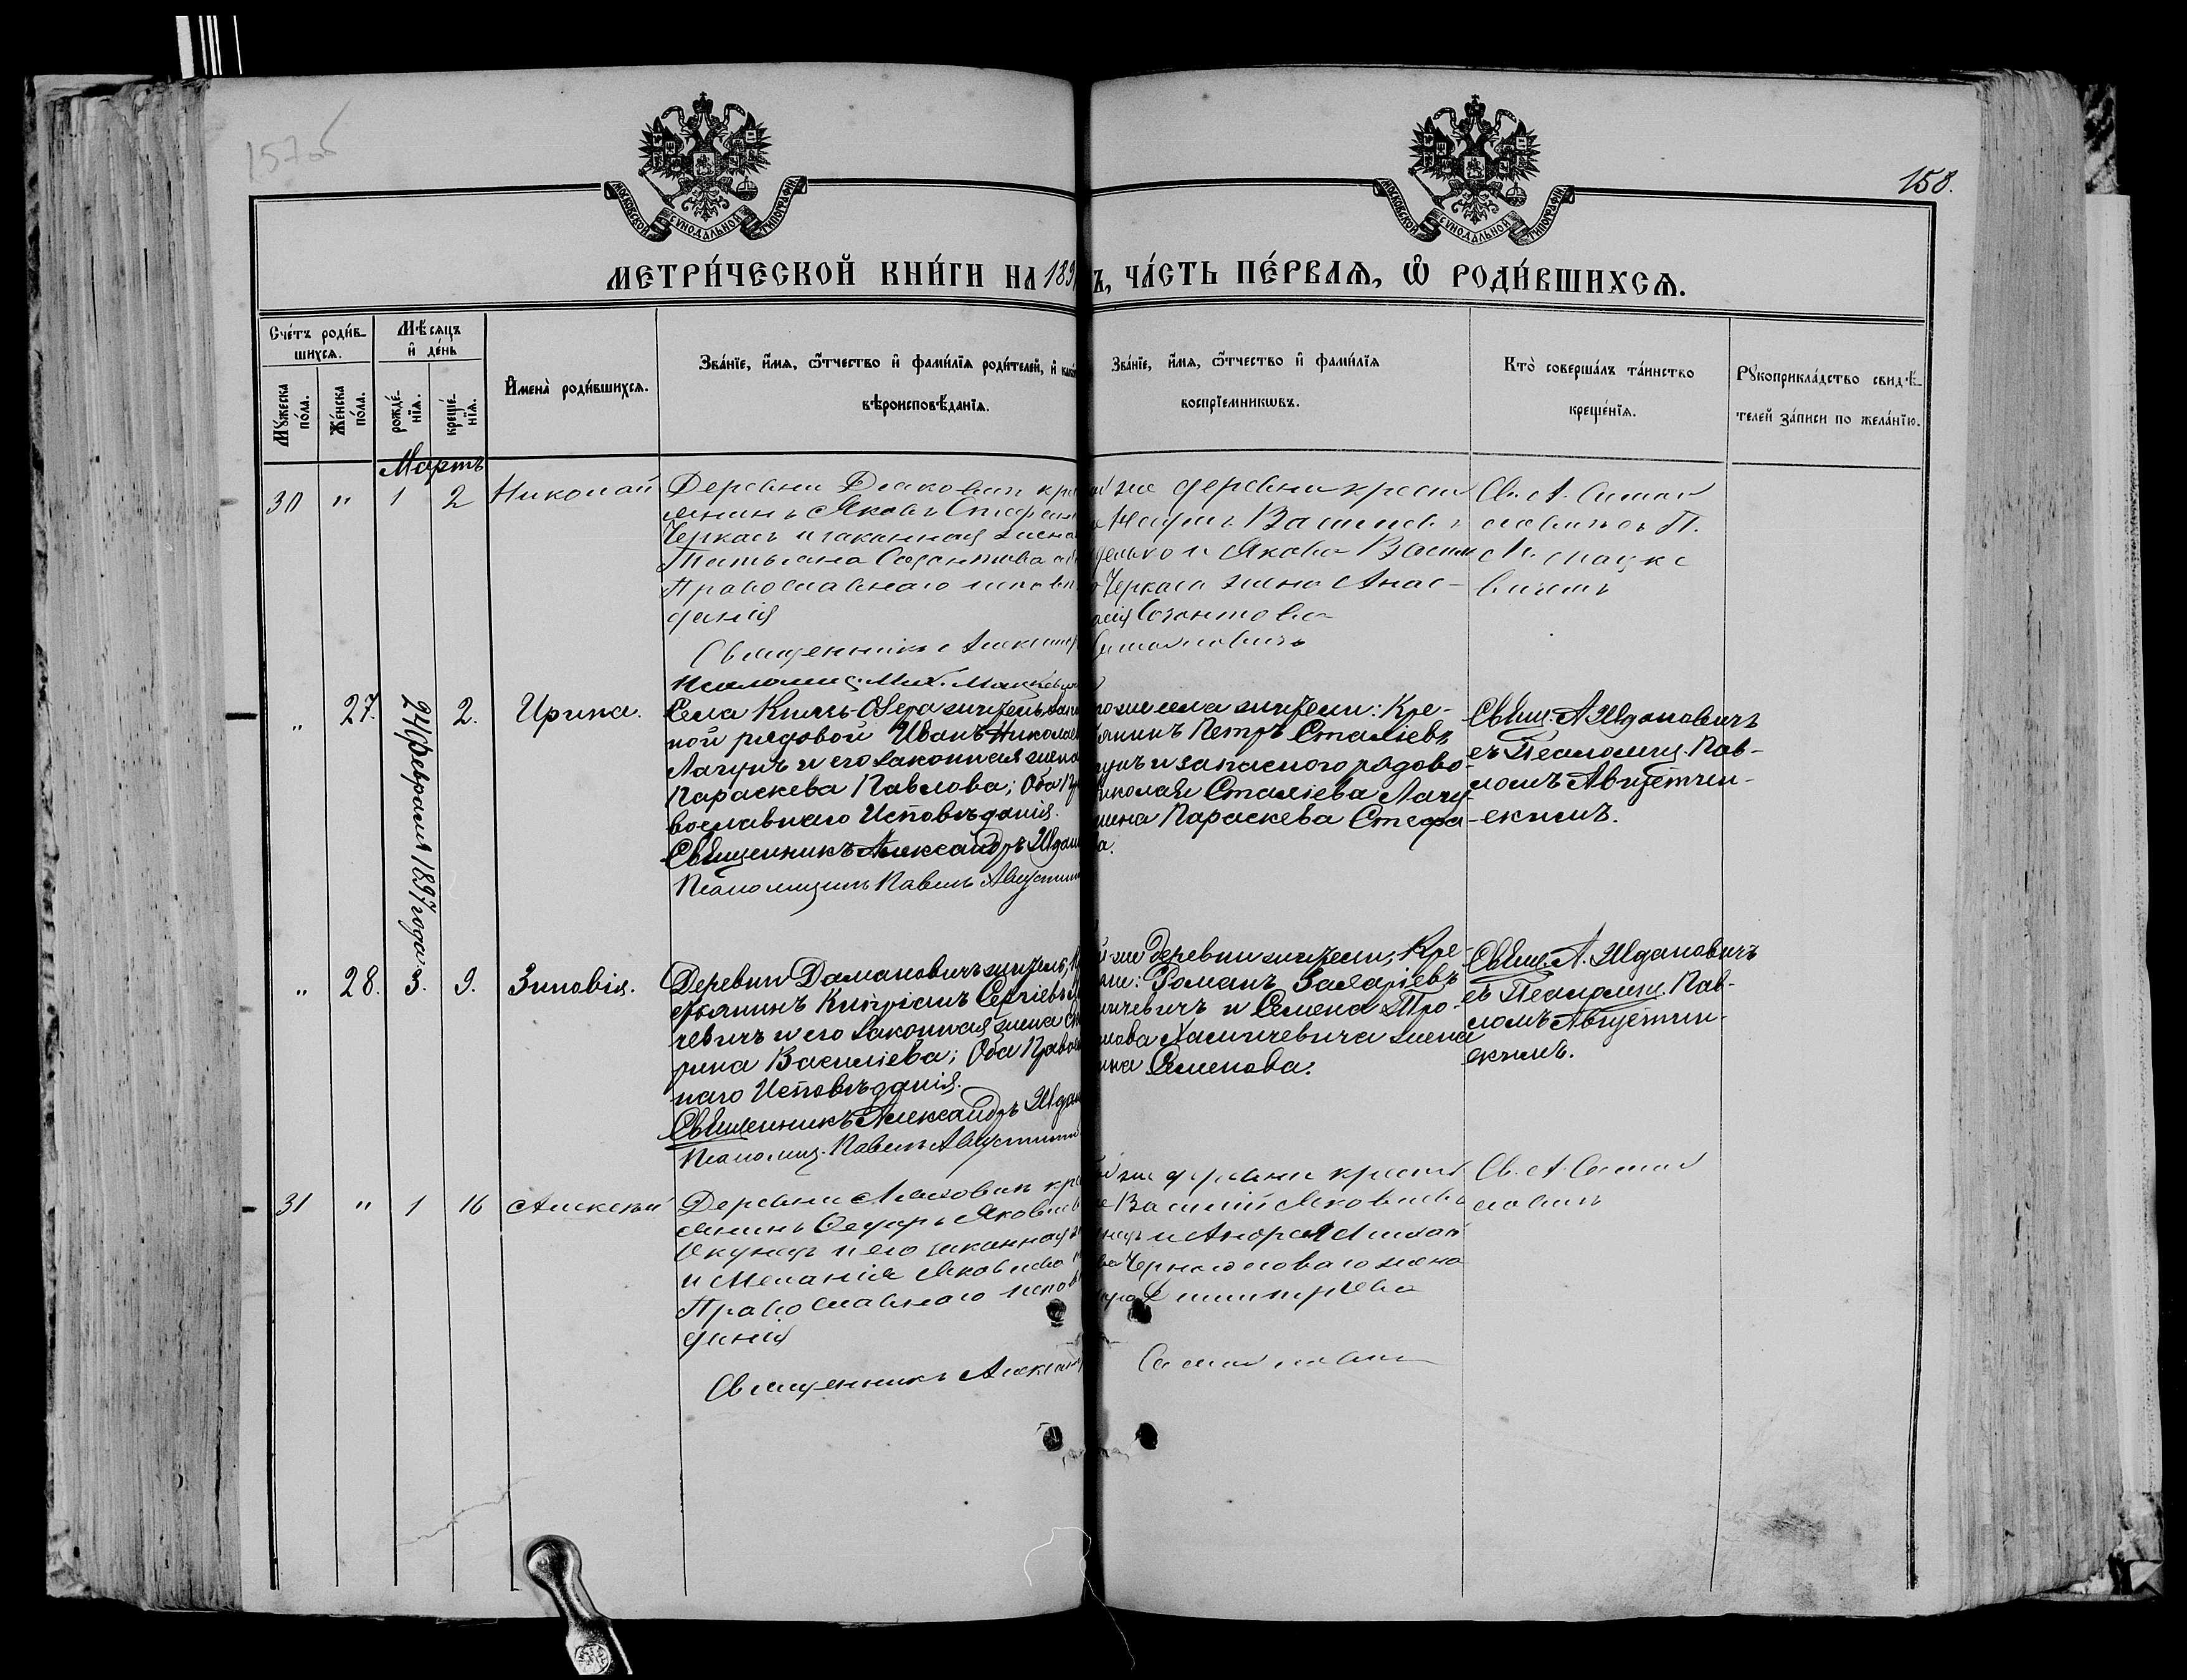 157об
158.
МОСКОВСКОЙ СѴНОДАЛЬНОЙ ТИПОГРАФІИ
МОСКОВСКОЙ СѴНОДАЛЬНОЙ ТИПОГРАФІИ
МЕТРИ́ЧЕСКОЙ КНИ́ГИ НА 189
Ъ, ЧА́СТЬ ПЕ́РВАѦ, Ѽ РОДИ́ВШИХСѦ.
Сче́тъ роди́в-
шихсѧ.
Мѣ́сяцъ
и҆ де́нь
Мꙋ́жеска
по́ла.
Же́нска
по́ла.
рожде́-
нїѧ.
креще́-
нїѧ.
И҆мена̀ роди́вшихсѧ.
Зва́нїе, и҆́мѧ, ѻ҆́тчество и҆ фами́лїѧ роди́телей, и҆
вѣроисповѣ́данїѧ.
Зва́нїе, и҆́мѧ, ѻ҆́тчество и҆ фами́лїѧ
воспрїе́мникѡвъ.
Кто̀ соверша́лъ та́инство
креще́нїѧ.
Рꙋкоприкла́дство свидѣ́-
телей за́писи по жела́нїю.
Мартъ
30 " 1 2 Николай
Деревни Дляковичъ кре
янинъ Яковъ Стефан
Черкасъ и законная жена
Татьяна Созонтова
Православнаго исповѣ
данія
Священникъ Александ
Псаломщ. Мих. Мацкевич
же деревни крест
Василiевъ
и Якова Васил
Черкаса жена Анас-
Созонтова
Св. А.
" 27. 24 февраля 1897 года 2. Ирина.
Села Князь-Озера житель: запа
ной рядовой Иванъ Николаев
Лагунъ и его законная жена
Параскева Павлова; Оба Пра
вославнаго Исповѣданія.
Священникъ Александръ Ждан
Псаломщикъ Павелъ Августин
го же села жители: Кре-
янинъ Петръ Стахіевъ
гунъ и запаснаго рядово-
иколая Стахіева Лагу-
жена Параскева Стефа-
ва.
Свящ: А Жданович
съ Псаломщ. Пав-
ломъ Августин-
скимъ.
" 28. 3. 9. Зиновія.
Деревни Домановичъ житель; К
стьянинъ Кипріанъ Сергіевъ
чевичъ и его законная жена
рина Василіева; Оба Правосл
наго Исповѣданія.
Священникъ Александръ Ждан
Псаломщ. Павелъ Августин
же деревни жители, Кре-
Романъ Захаріевъ
ничевичъ и Семена Тро-
мова Хаминчевича жена
Семенова.
Свящ. А. Жданович
съ Псаломщ. Пав-
ломъ Августин-
скимъ.
31 " 1 16 Алексѣй
Деревни Ляховичъ кре
янинъ Ѳедоръ Яковлев
Окунецъ и его законная
и Меланія Яковлева
Православнаго исповѣ
данія
Священникъ Александ
же деревни крест
Василій Яковлевъ
и Андрея Михай
жена
Димитріева
Св. А.